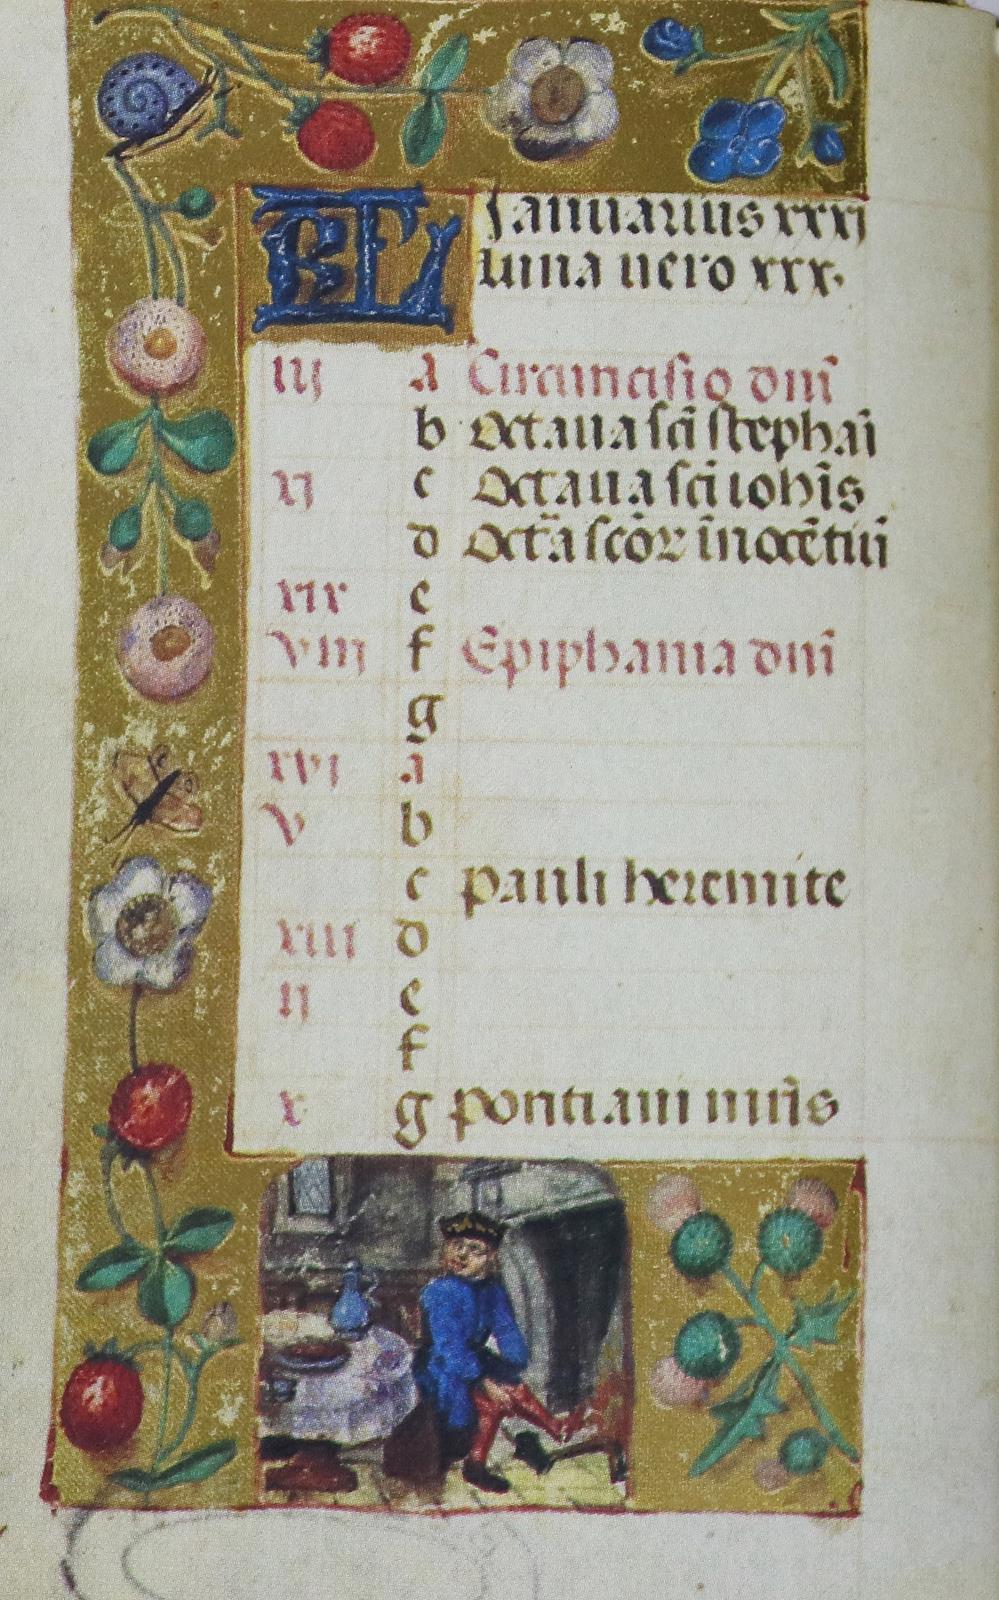 KL Januarius xxxi
luna uero xxx.
iij a Circumcisio dn̄i
b Octaua sc̄i stephāi
xj c Octaua sc̄i ioh̄is
d Oct̄a sc̄oꝝ īnocētiū
xix e
viij f Epiphania dn̄i
g
xvj a
v b
c pauli heremite
xiii d
ij e
f
x g pontiani m̄ris